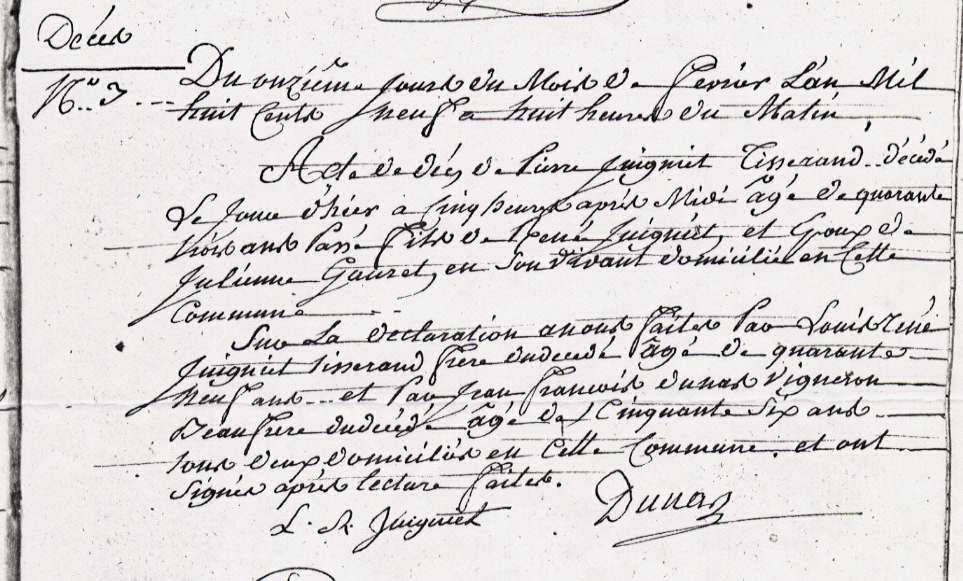 Décès
N.° 3
Du onzième Jours du Mois de fevrier L'an Mil
huit Cents Neuf a huit heures du Matin
Acte de décès de Pierre Juignet Tisserand décédé
Le Jour d'hier a Cinq heures après Midi âgé de quarante
trois ans Passé fils de René Juignet, et Epoux de
Julienne Gauret, en Son Vivant domicilié en Cette
Commune
Sur La declaration a nous faites Par Louis René
Juignet tisserand frere du decedé âgé de quarante
Neuf ans et Par Jean François dunas Vigneron
Beau frere du décédé âgé de Cinquante Six ans
tous deux domiciliés en Cette Commune. et ont
Signés après lecture faites.
L. R. Juignet Dunas